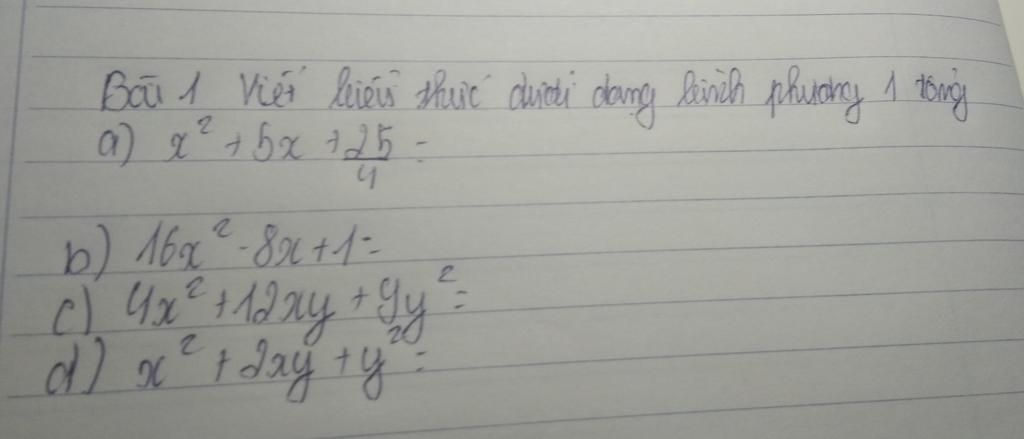 Bài 1 Viết biểu thức dưới dạng bình phương 1 tổng
a) x² + 5x + 25/4 =
b) 16x² - 8x + 1 =
c) 4x² + 12xy + 9y² =
d) x² + 2xy + y² =